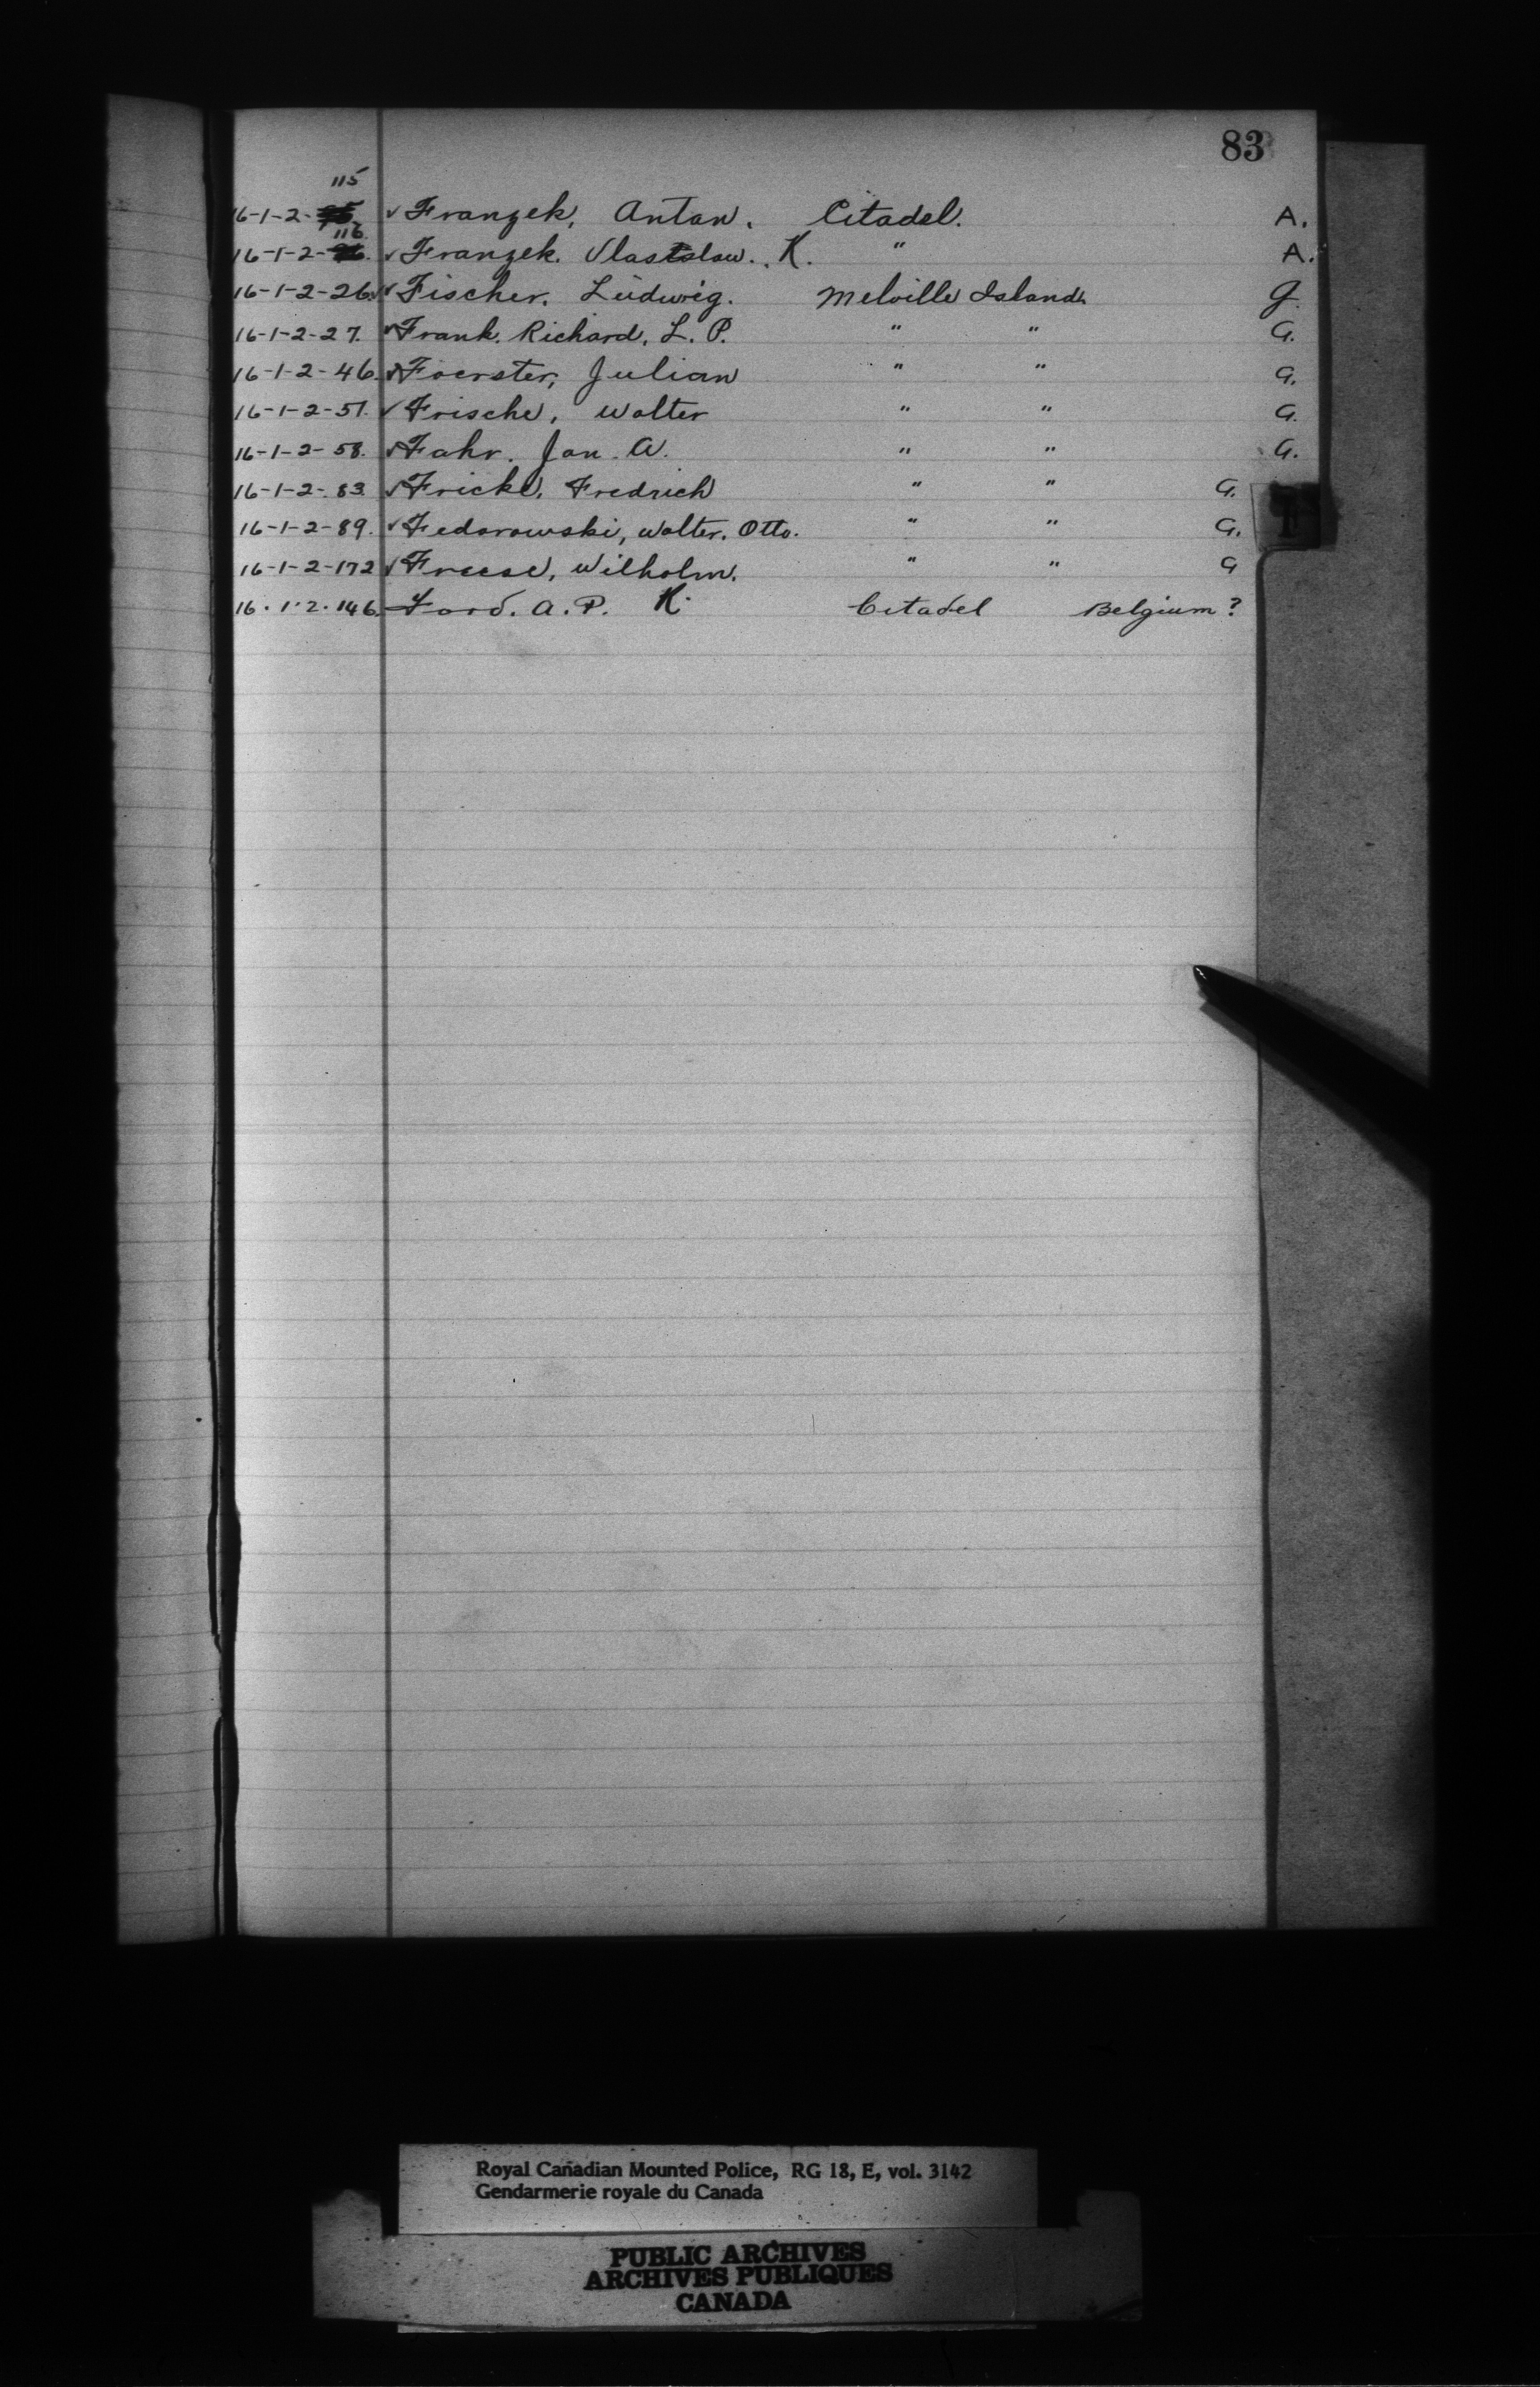 83
115
16-1-2- ✓Franzek, Antan. Citadel. A.
116.
16-1-2- ✓Franzek. Vlastslaw. K. " A.
16-1-2-26. ✓Fischer. Ludwig. Melville Island. G.
16-1-2-27. ✓Frank. Richard. L. P. " " G.
16-1-2-46. ✓Foerster, Julian " " G.
16-1-2-51. ✓Frische, Walter " " G.
16-1-2-58. ✓Fahr. Jan. A. " " G.
16-1-2-83. ✓Fricke, Fredrich " " G.
16-1-2-89. ✓Fedorowski, Walter. Otto. " " G.
16-1-2-172 ✓Freese, Wilholm. " " G
16.1.2.146. Ford. A. P. K. Citadel Belgium?
Royal Canadian Mounted Police, RG 18, E, vol. 3142
Gendarmerie royale du Canada
PUBLIC ARCHIVES
ARCHIVES PUBLIQUES
CANADA